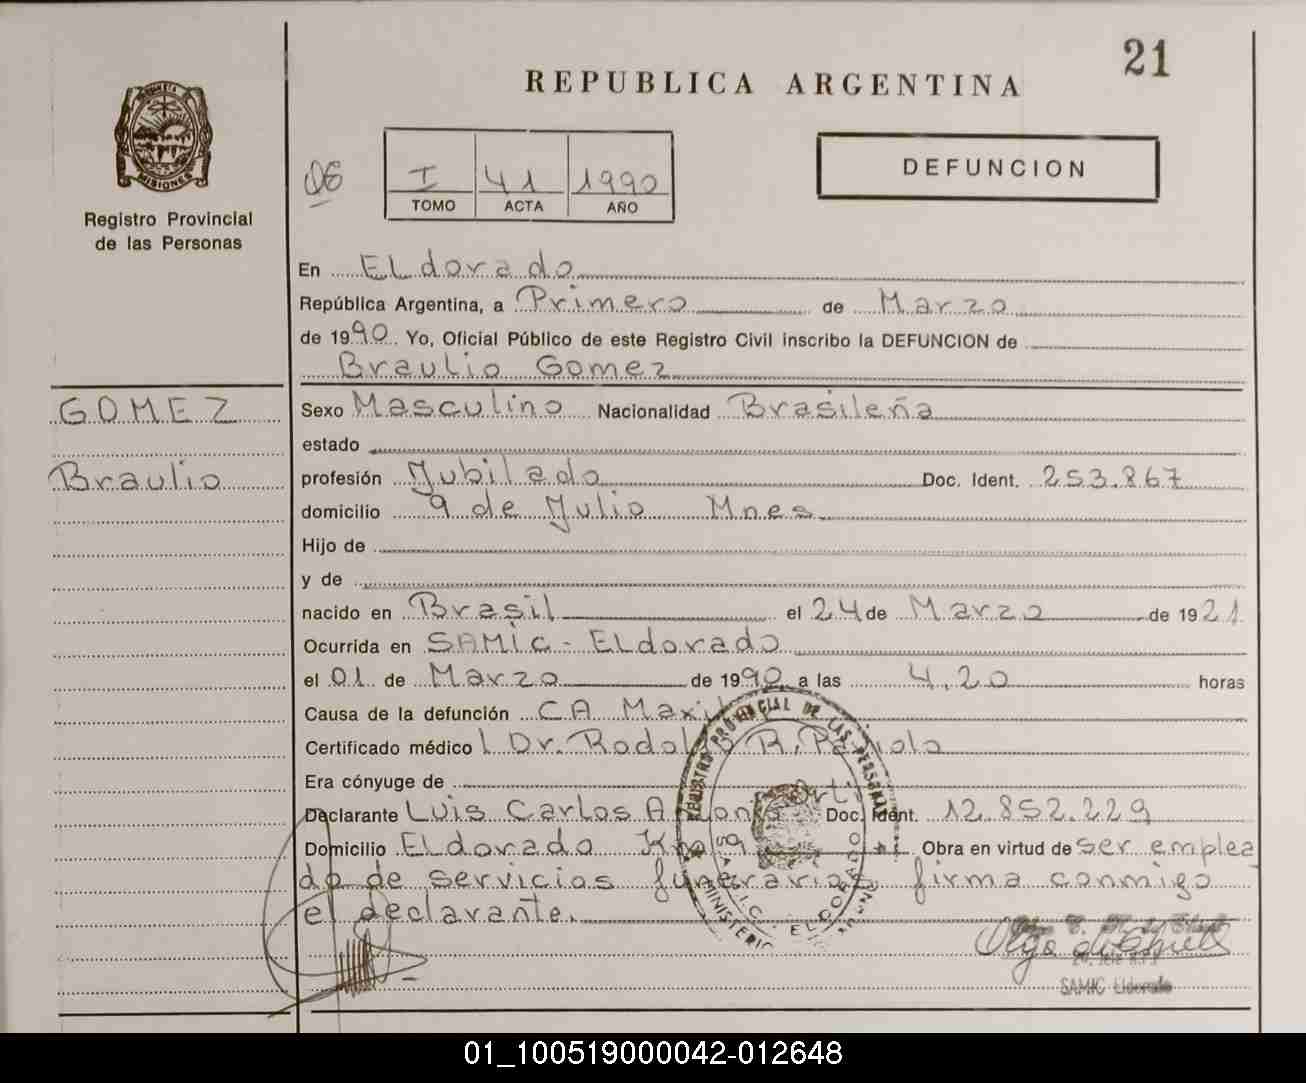 21
REPUBLICA ARGENTINA
MISIONES
Registro Provincial
de las Personas
DE
I 41 1990
TOMO ACTA AÑO
DEFUNCION
En ELdorado
República Argentina, a Primero de Marzo
de 1990 Yo, Oficial Público de este Registro Civil inscribo la DEFUNCION de
Braulio Gomez
GOMEZ
Braulio
Sexo Masculino Nacionalidad Brasileña
estado
profesión Jubilado Doc. Ident. 253.867
domicilio 9 de Julio Mnes
Hijo de
y de
nacido en Brasil el 24 de Marzo de 1921
Ocurrida en SAMIC - ELdorado
el 01 de Marzo de 1990 a las 4,20 horas
Causa de la defunción CA
Certificado médico Dr. Rodolfo R.
Era cónyuge de
Declarante Luis Carlos Doc. Ident. 12.852.229
Domicilio ELdorado Km 9 Obra en virtud de ser emplea
do de servicios funerarios firma conmigo
el declarante.
REGISTRO PROVINCIAL DE LAS PERSONAS
S.A.M.I.C. ELDORADO
MINISTERIO
SAMIC Eldorado
01_100519000042-012648